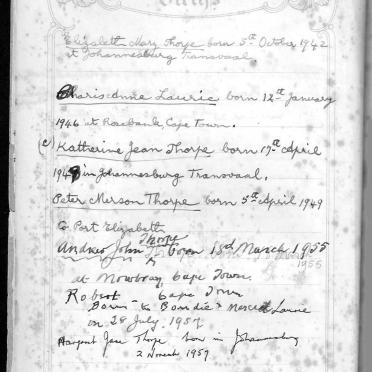 Births
Elizabeth Mary Thorpe born 5th October 1942
at Johannesburg Transvaal.
Charisanne Laurie born 12th January
1946 at Rosebank, Cape Town.
(e) Katherine Jean Thorpe born 17th April
1948 in Johannesburg Transvaal.
Peter Merson Thorpe born 5th April 1949
Port Elizabeth
Andrew John Thorpe born 18d March 1955
1955
at Mowbray Cape Town
Robert - Cape Town
Born to & Laurie
on 28 July. 1957
Margaret Jane Thorpe born in Johannesburg
2 November 1957